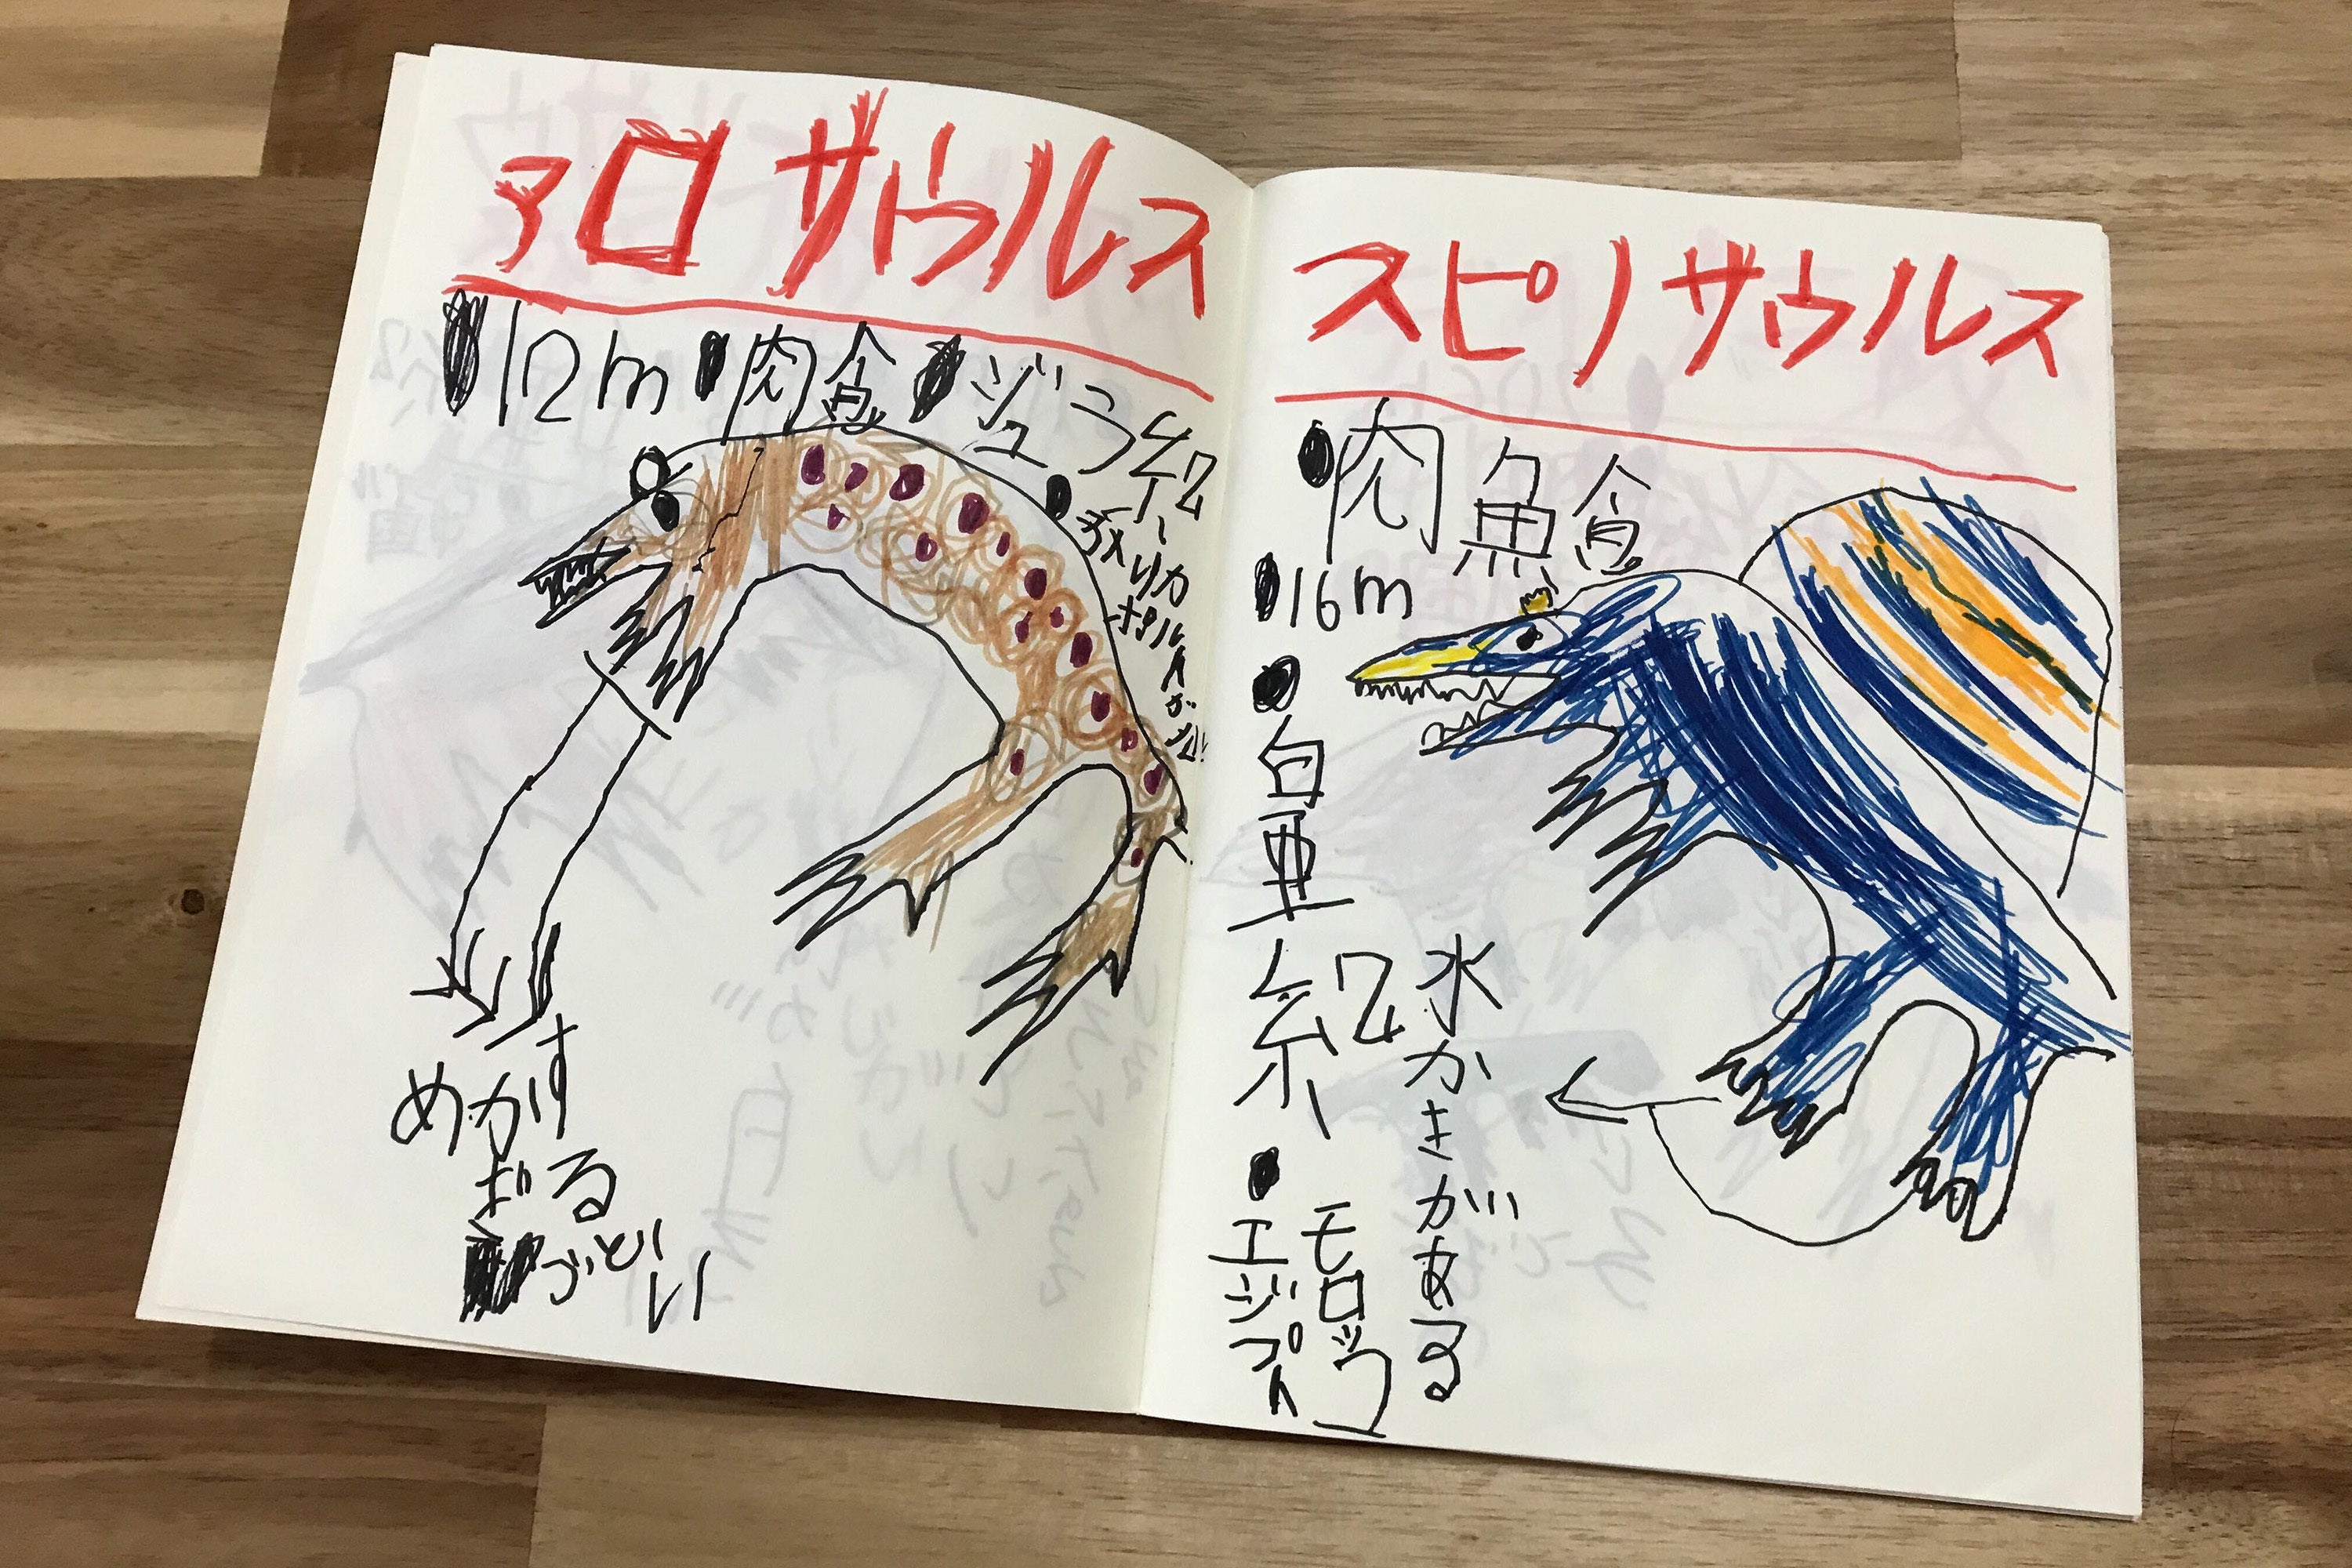 アロサウルス
12m 肉食 ジュラ紀
アメリカ
ポルトガル
めがす
するどい
スピノサウルス
肉魚食
16m
白亜紀
エジプト
モロッコ
水かきがある